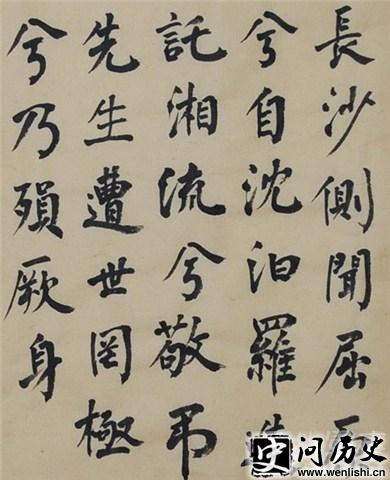 長沙側聞屈
兮自沈汨羅
託湘流兮敬弔
先生遭世罔極
兮乃殞厥身
史问历史
www.wenlishi.cn